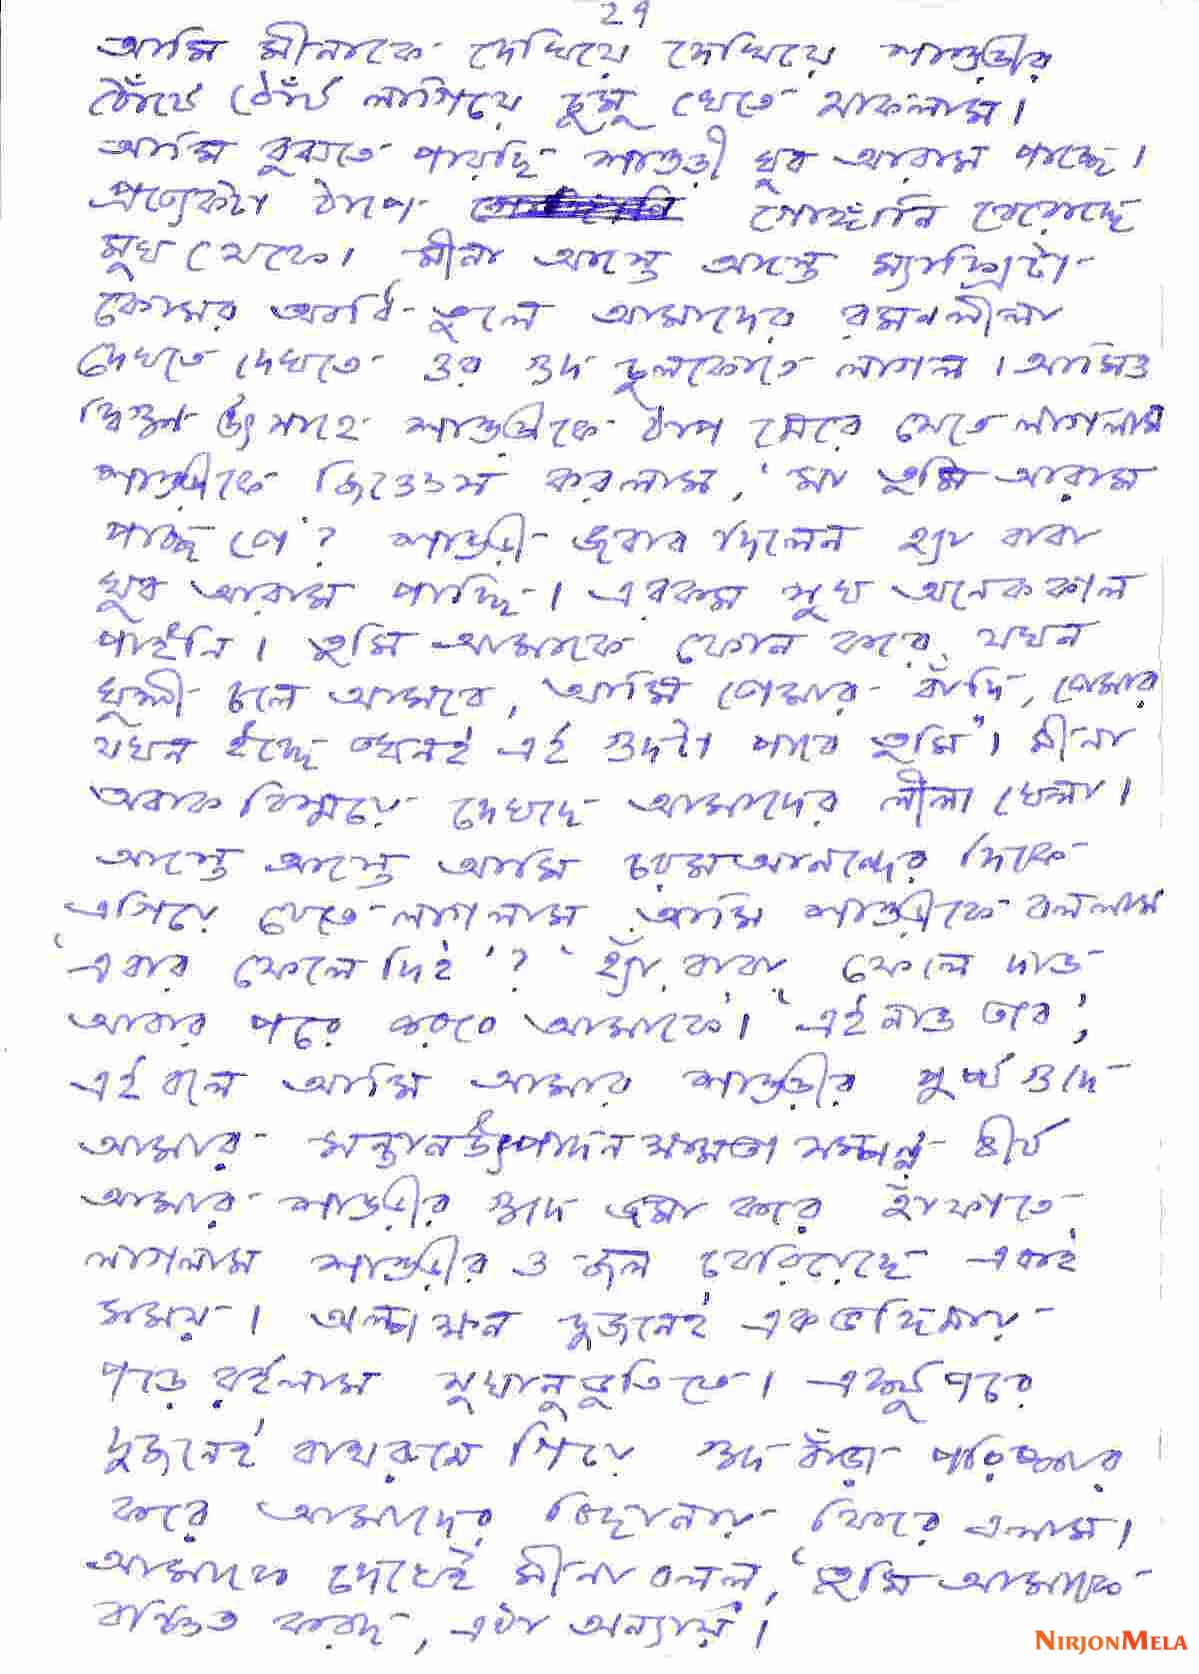 ২৭
আমি মীনাকে দেখিয়ে দেখিয়ে শাশুড়ীর
ঠোঁটে ঠোঁট লাগিয়ে চুমু খেতে থাকলাম।
আমি বুঝতে পারছি শাশুড়ী খুব আরাম পাচ্ছে।
প্রত্যেকটা ঠাপে গোঙানি বেরোচ্ছে
মুখ থেকে। মীনা আস্তে আস্তে ম্যাক্সিটা
কোমর অবধি তুলে আমাদের রমণলীলা
দেখতে দেখতে ওর গুদ চুলকোতে লাগল। আমিও
দ্বিগুণ উৎসাহে শাশুড়ীকে ঠাপ মেরে যেতে লাগলাম
শাশুড়ীকে জিজ্ঞেস করলাম, 'মা তুমি আরাম
পাচ্ছ তো'? শাশুড়ী জবাব দিলেন হ্যা বাবা
খুব আরাম পাচ্ছি। এরকম সুখ অনেককাল
পাইনি। তুমি আমাকে ফোন করে যখন
খুশী চলে আসবে, আমি তোমার বাঁদি, তোমার
যখন ইচ্ছে তখনই এই গুদটা পাবে তুমি"। মীনা
অবাক বিস্ময়ে দেখছে আমাদের লীলা খেলা।
আস্তে আস্তে আমি চরম আনন্দের দিকে
এগিয়ে যেতে লাগলাম আমি শাশুড়ীকে বললাম
'এবার ফেলে দিই'? 'হ্যাঁ বাবা ফেলে দাও
আবার পরে করবে আমাকে'। 'এই নাও তবে',
এই বলে আমি আমার শাশুড়ীর গুদে
আমার সন্তান উৎপাদন ক্ষমতা সম্পন্ন বীর্য
আমার শাশুড়ীর গুদে জমা করে হাঁফাতে
লাগলাম শাশুড়ীর ও জল বেরিয়েছে একই
সময়। অল্পক্ষন দুজনেই একভঙ্গিমায়
পড়ে রইলাম সুখানুভুতিতে। একটু পরে
দুজনেই বাথরুমে গিয়ে গুদ বাঁড়া পরিষ্কার
করে আমাদের বিছানায় ফিরে এলাম।
আমাকে দেখেই মীনা বলল, 'তুমি আমাকে
বঞ্চিত করছ, এটা অন্যায়'।
NIRJONMELA